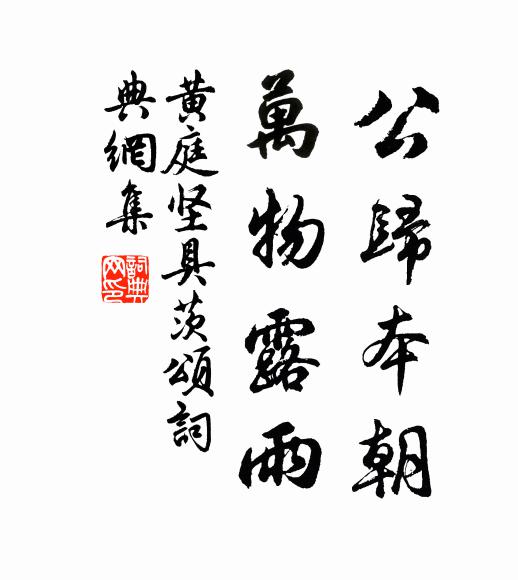 公歸本朝
萬物露雨
黃庭坚具茨頌詞
典網集
詞典網印